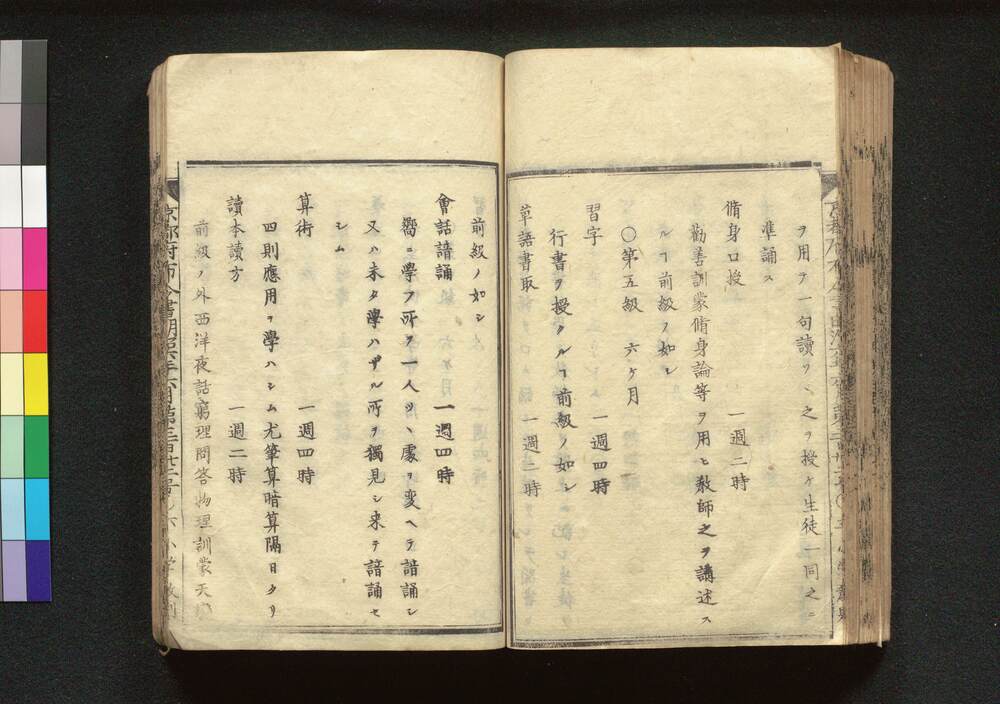 ヲ用ヲ一句讀ツヽ之ヲ授ケ生徒一同之ニ
準誦ス
脩身口授 一週二時
勸善訓蒙脩身論等ヲ用ヒ教師之ヲ講述ス
ルヿ前級ノ如シ
〇第五級 六ケ月
習字 一週四時
行書ヲ授クルヿ前級ノ如シ
單語書取 一週二時
前級ノ如シ
會話諳誦 一週四時
嚮ニ學フ所ヲ一人ツヽ處ヲ変ヘテ諳誦シ
又ハ未タ學ハサル所ヲ獨見シ来テ諳誦セ
シム
算術 一週四時
四則應用ヲ學ハシム尤筆算暗算隔日タリ
讀本讀方 一週二時
前級ノ外西洋夜話窮理問答物理訓蒙天
京都府布令書明治六年六月第三百廿二号 六 小学教則